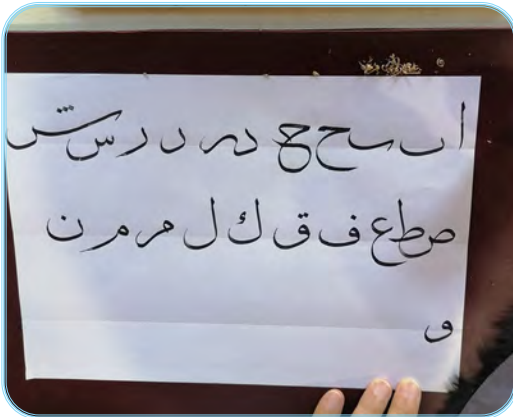 ا ب ى ح ج د ر د ر س ش
ص ط ع ف ق ك ل م م ن
و